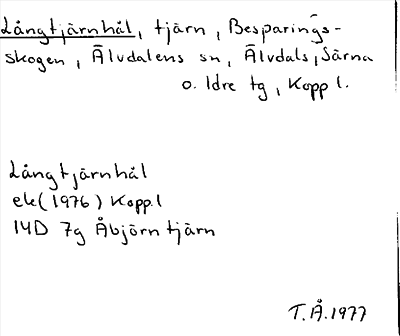 Långtjärnhål, tjärn, Besparings-
skogen, Älvdalens sn, Älvdals, Särna
o. Idre tg, Kopp l.
Långtjärnhål
ek(1976) Kopp.l
14D 7g Åbjörntjärn
T.Å.1977